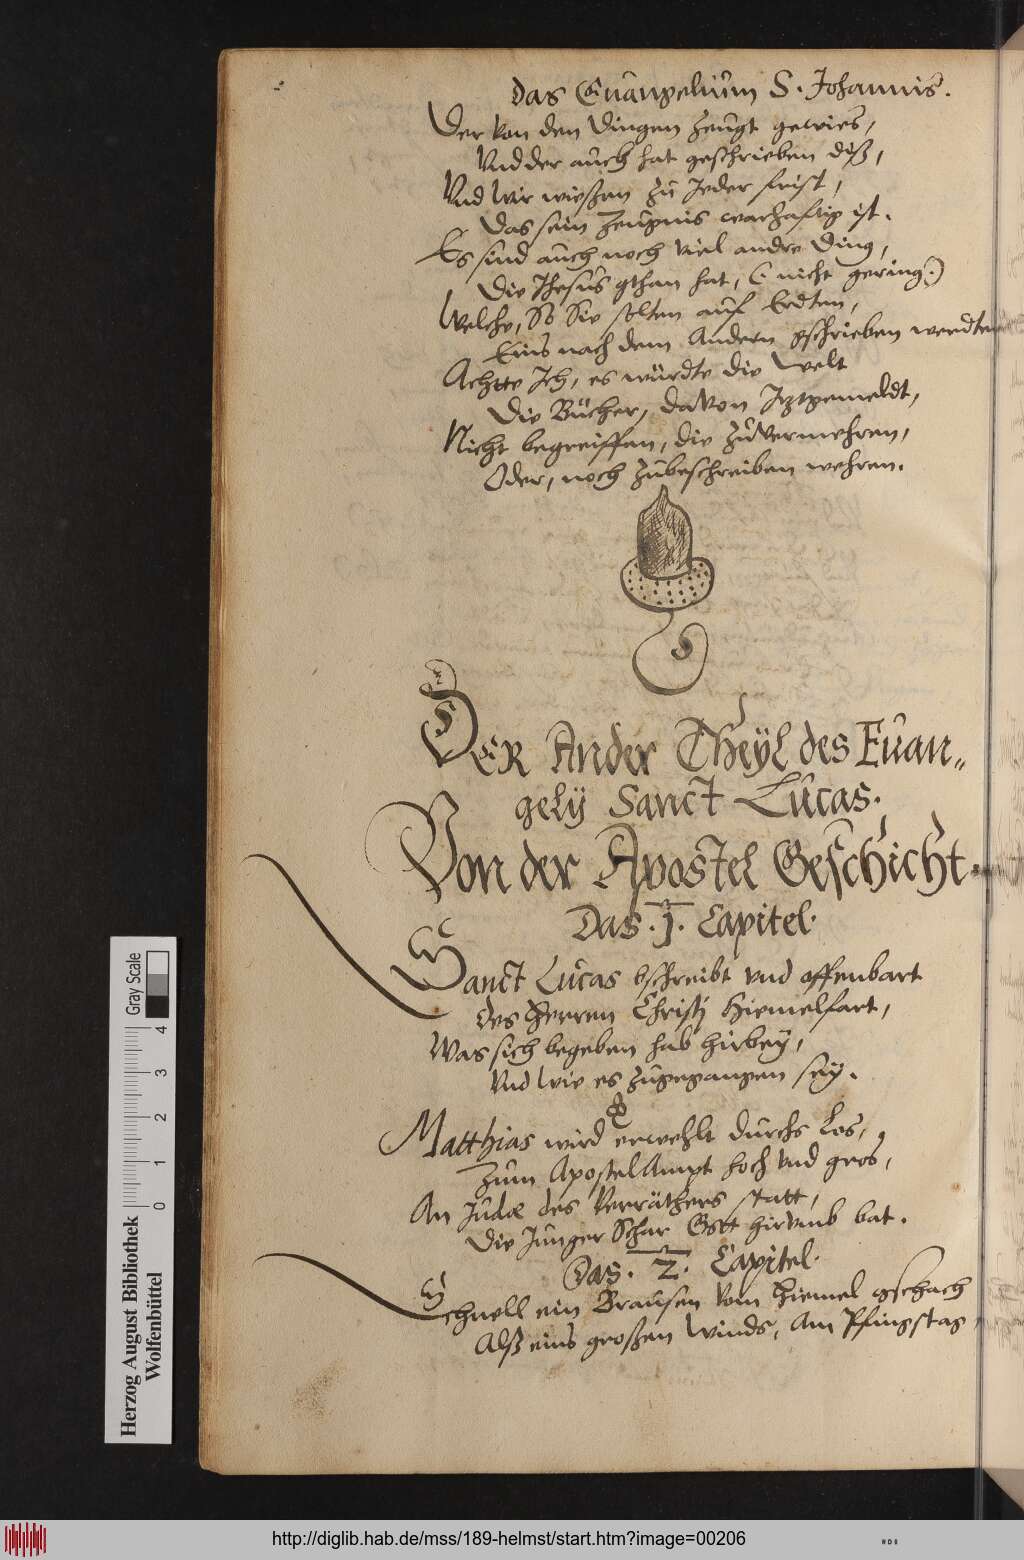 das Euangelium S. Johannis.
Der von den Dingen zeugt gewies,
Vnd der auch hat geschrieben diß,
Vnd Wir wießen zu Jeder frist,
Das sein Zeugnis warhafftig ist.
Es sind auch noch viel andre Ding,
Die Jhesus gthan hat, (nicht gering.)
Welche, So Sie solten auf Erdten,
Eins nach dem Andern gschrieben werdten
Achtte Ich, es würdte die Welt
Die Bücher, davon Jtztgemeldt,
Nicht begreiffen, die zuvermehren,
Oder, noch zubeschreiben wehren.
DER Ander Theÿl des Euan„
gelÿ Sanct Lucas.
Von der Apostel Geschicht.
Das .1. Capitel.
Sanct Lucas bschreibt vnd offenbart
des Herren Christj Hiemelfart,
Was sich begeben hab hirbeÿ,
Vnd Wie es zugegangen seÿ.
Matthias wird erwehlt durchs Los,
Zum Apostel Ampt hoch vnd gros,
An Judæ des Verräthers statt,
Die Junger Schar Gott hirvmb bat.
Das .2. Capitel.
Schnell ein Brausen vom Hiemel gschach
Alß eins großen Winds, Am Pfingstag
Herzog August Bibliothek
Wolfenbüttel
0 1 2 3 4
Gray Scale
http://diglib.hab.de/mss/189-helmst/start.htm?image=00206